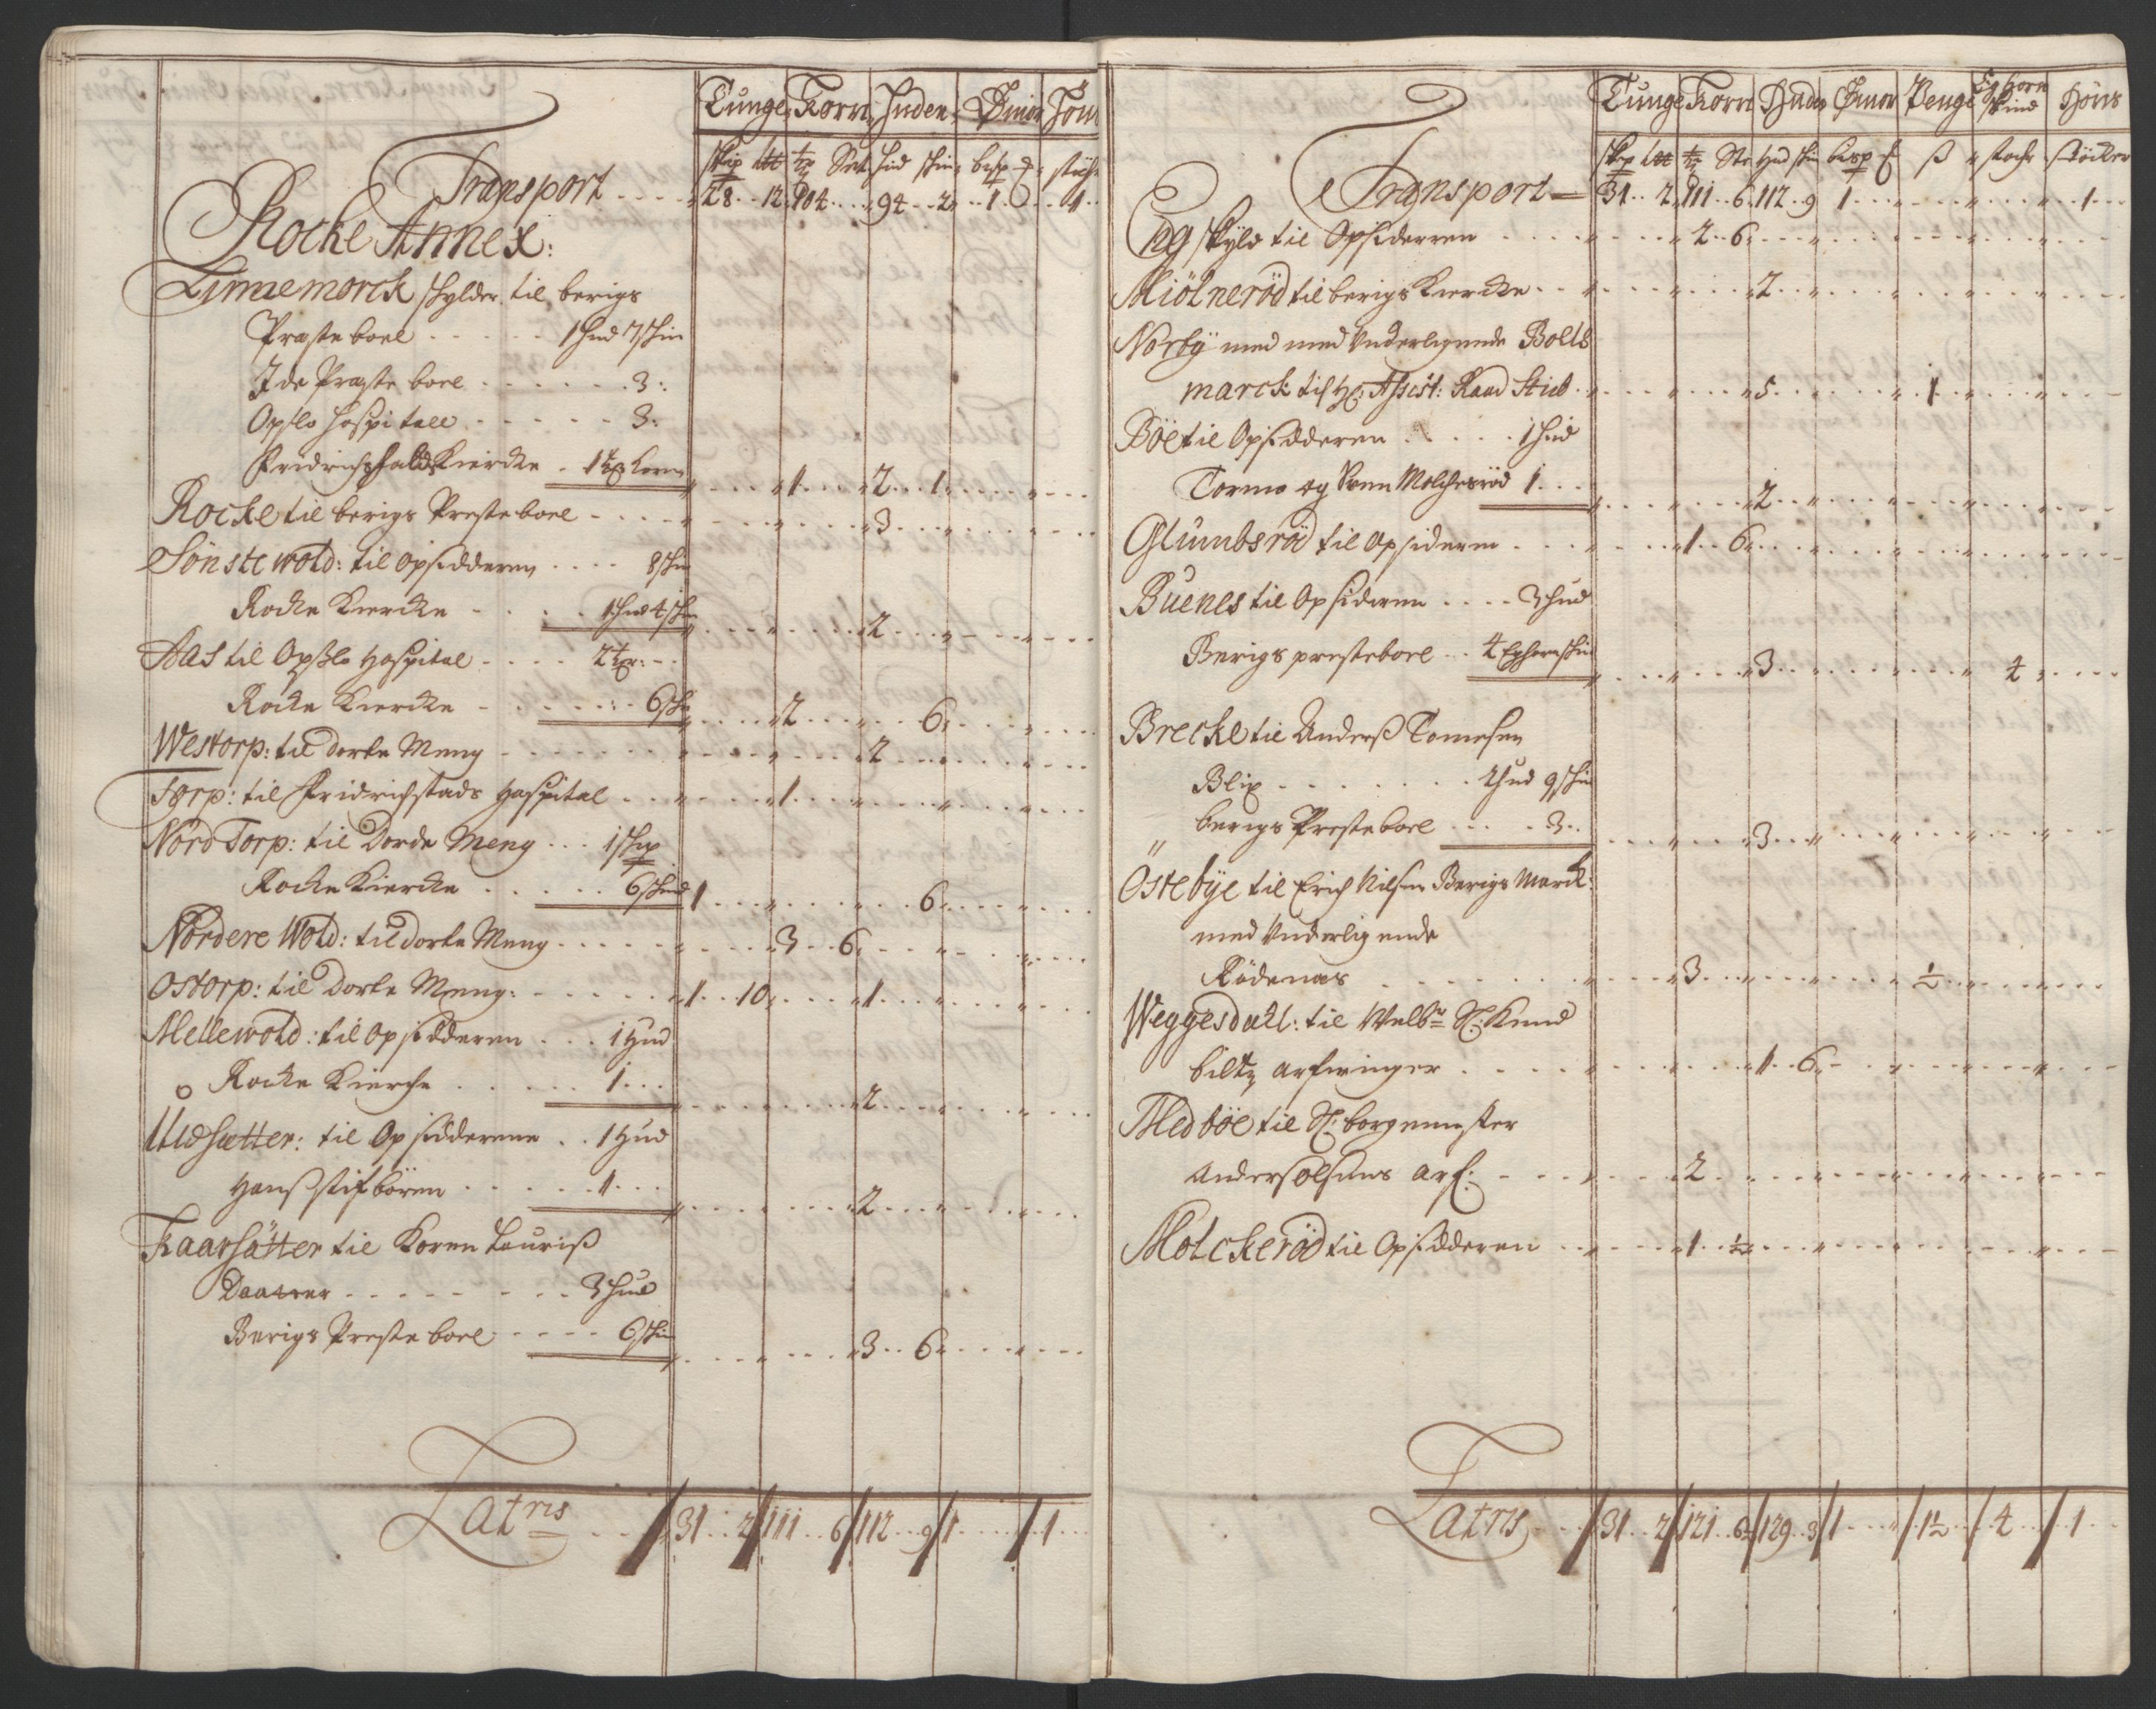 Tunge Korn Huder Smør Høns
skip lb tr Set hud skin bdsp stüch
Transport 28 12 104 94 2 1 1
Rocke Annex:
Linnemorck skylder til berigs
Præste boel 1 hud 7 skin
Jde Præste boel 3:
Opslo hospitall 3:
Fridrichshalds Kiercke 1 tr Korn 1 2 1
Rocke til berigs Preste boel 3
Sönste wold: til opsidderen 8 skin
Rocke Kiercke 1 hud 4 skin 2
Aas til Opslo Hospital 2 tr:
Rocke Kiercke 6 skin 2 6
Westorp: til dorte Meng 2
Torp: til Fridrichstads Hospital 1
Nord Torp: til Dorde Meng 1 skip
Rocke Kiercke 6 skind 1 6
Nordere Wold: til dorte Meng 3 6
Ostorp: til Dorte Meng: 1 10 1
Mellewold: til opsidderen 1 Hud
Rocke Kierche 1 2
Udsætter: til Opsidderene 1 Hud
Hans stifbören 1 2
Kaarsätter til Karen Lauriß
Daatter 3 hud
Berigs Preste boel 6 skin 3 6
Latris 31 2 111 6 112 9 1 1
Tunge Korn Huder Smør Penge Eghorn skind Höns
skp lb tr Ste Hud skin bdsp ß stochr stöcker
Transport 31 2 111 6 112 9 1 1
Eng skyld til Opsiderren 2 6
Miölneröd til berigs Kiercke 2
Norby med med Underligende Bolts
marck til Hr: Assist: Raad Stub 5 1
Böe til Opsidderen 1 hud
Tormo og Svenn Molcheröd 1 2
Glumbsröd til opsideren 1 6
Buenes til Opsideren 3 hud
Berigs presteboel 4 Eghornskin 3 4
Brecke til Anders Tomesen
Blix 2 hud 9 skin
berigs Presteboel 3 3
Östebye til Erich Nilsen Berigs Marck:
med Underligende
Rödenæs 3 ½
Weggesdahl: til Welbr Sl: Knud
biltz arfvinger 1 6
Medböe til Sl: borgemester
Andersolsens arf: 2
Molckeröd til Opsidderen 1 ½
Latris 31 2 121 6½ 129 3 1 1½ 4 1